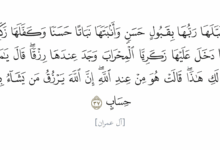 بَّلَهَا رَبُّهَا بِقَبُولٍ حَسَنٍ وَأَنۢبَتَهَا نَبَاتًا حَسَنًا وَكَفَّلَهَا زَكَ
ا دَخَلَ عَلَيْهَا زَكَرِيَّا ٱلْمِحْرَابَ وَجَدَ عِندَهَا رِزْقًا ۖ قَالَ يَٰمَ
لَكِ هَٰذَا ۖ قَالَتْ هُوَ مِنْ عِندِ ٱللَّهِ ۖ إِنَّ ٱللَّهَ يَرْزُقُ مَن يَشَآءُ بِ
حِسَابٍ ٣٧
[آل عمران]